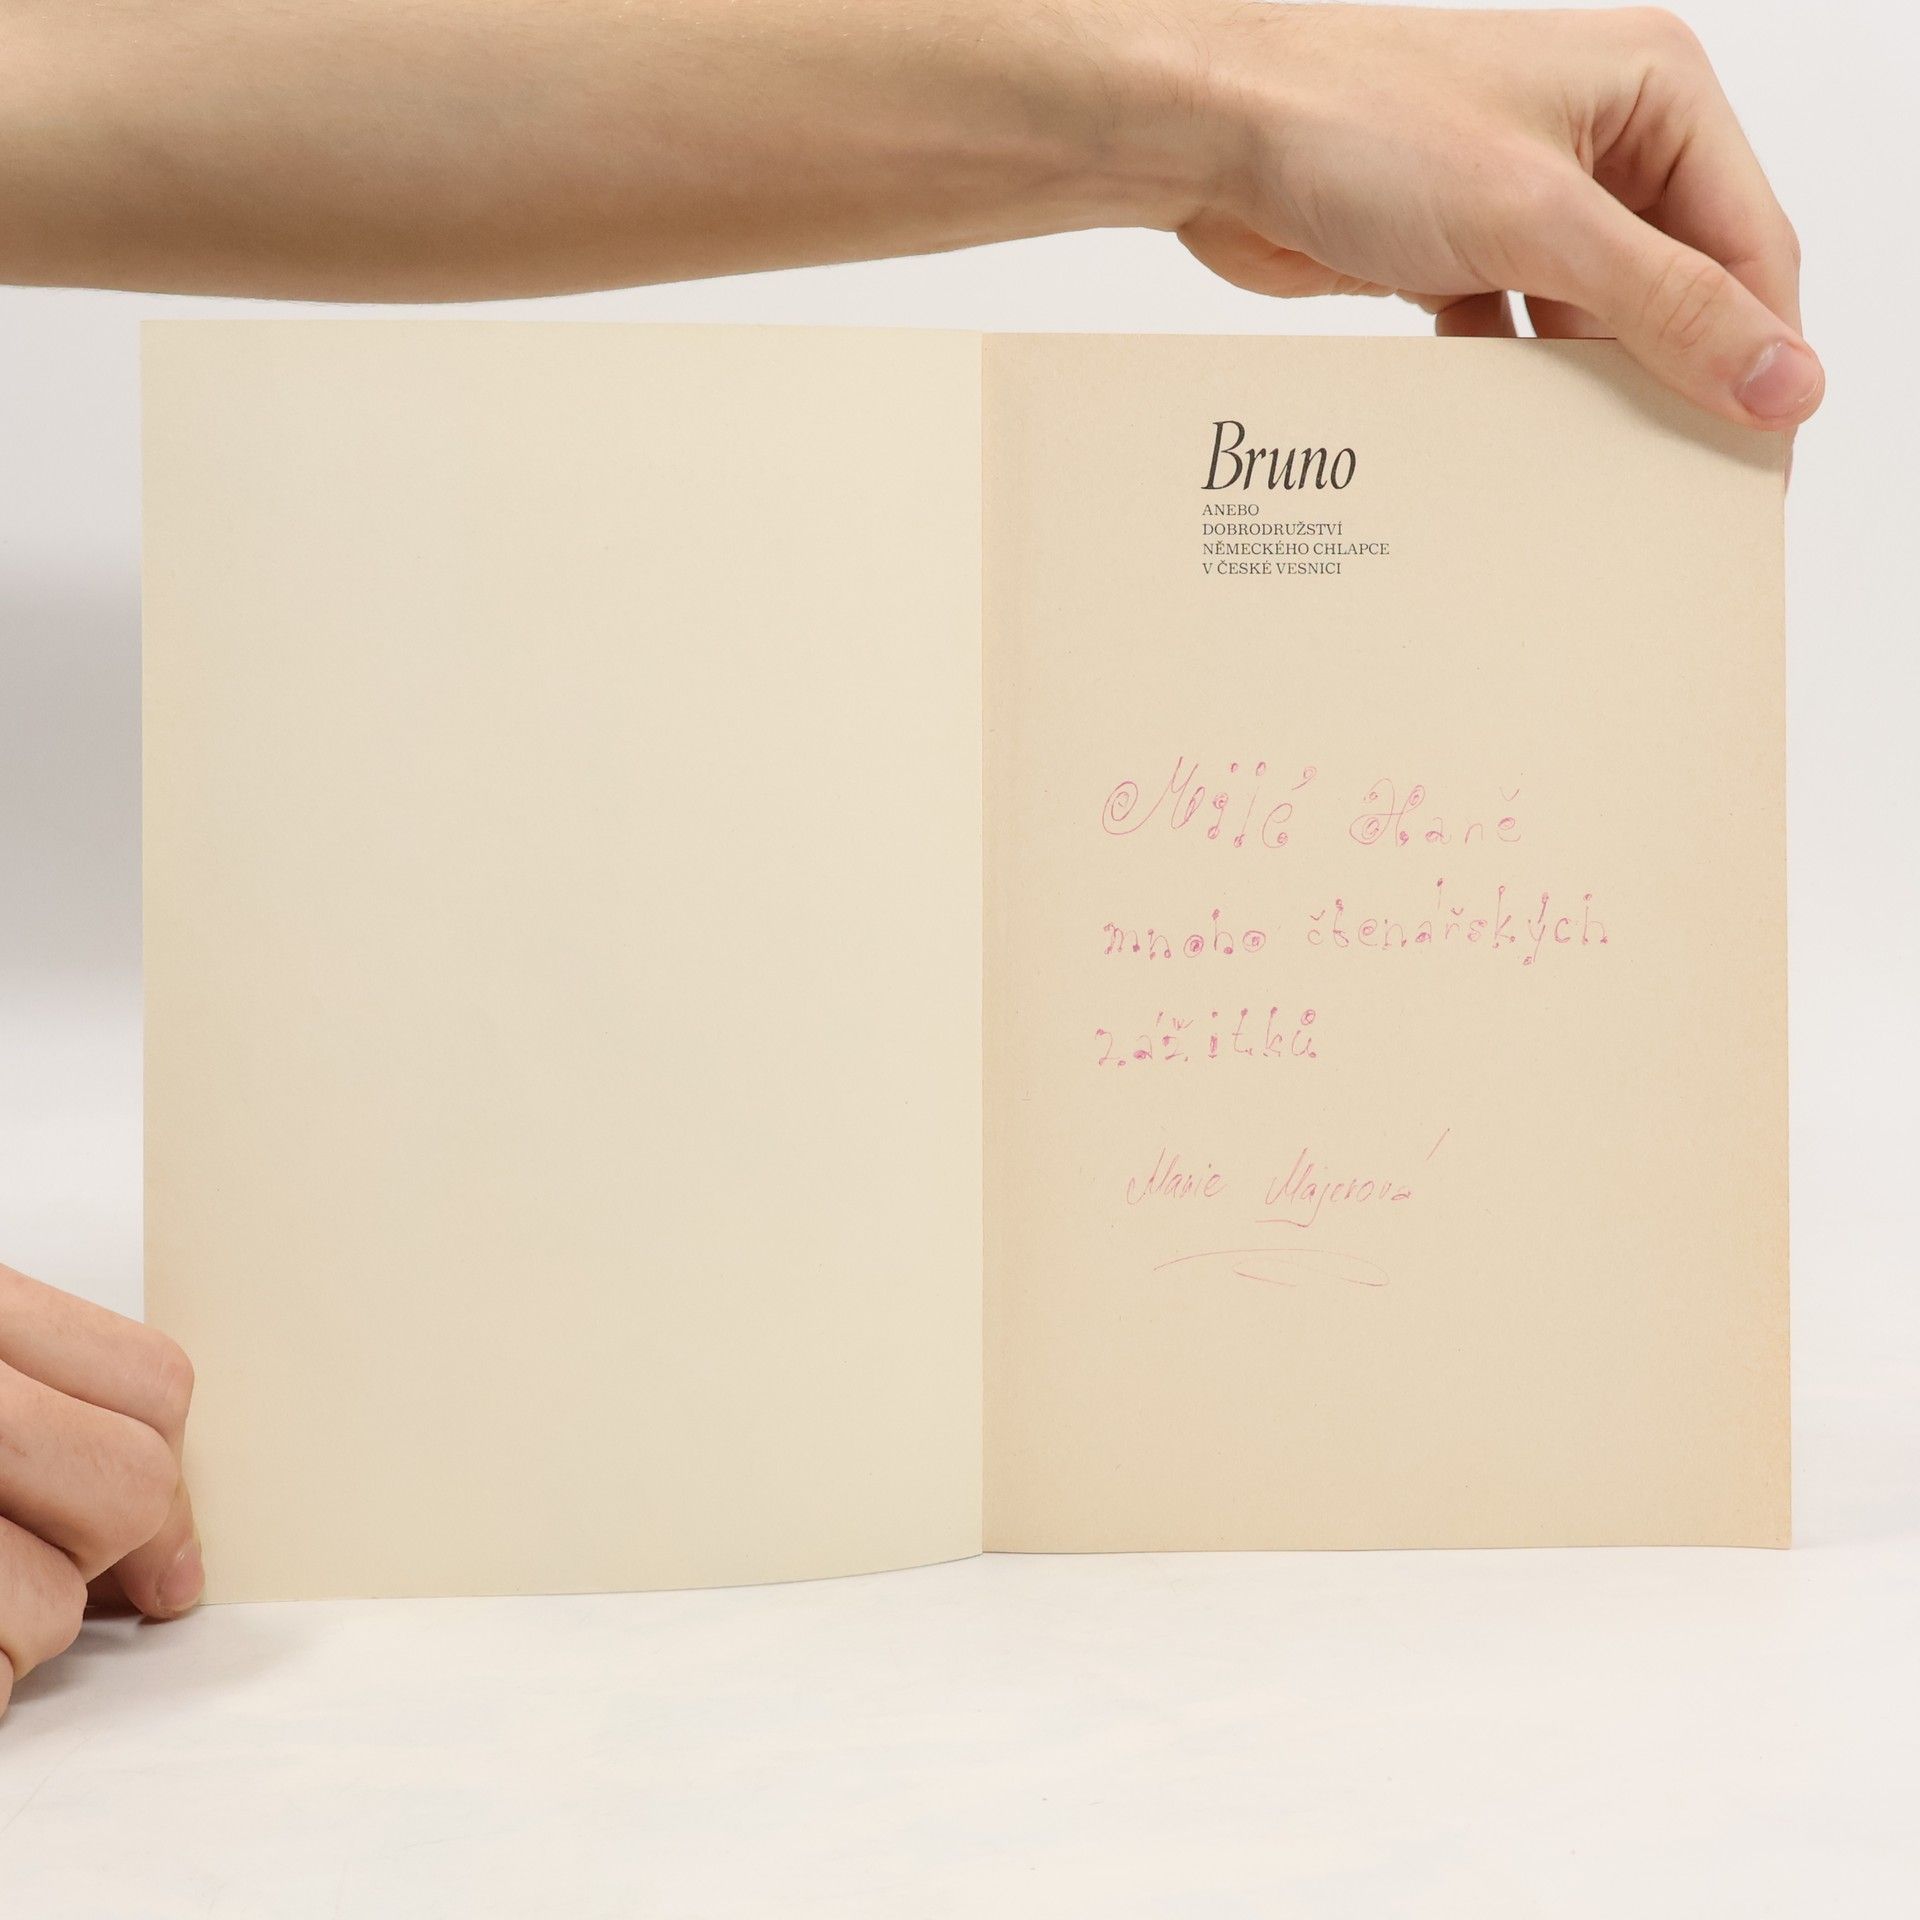 Bruno
ANEBO
DOBRODRUŽSTVÍ
NĚMECKÉHO CHLAPCE
V ČESKÉ VESNICI
Milé Haně
mnoho čtenářských
zážitků
Marie Majerová